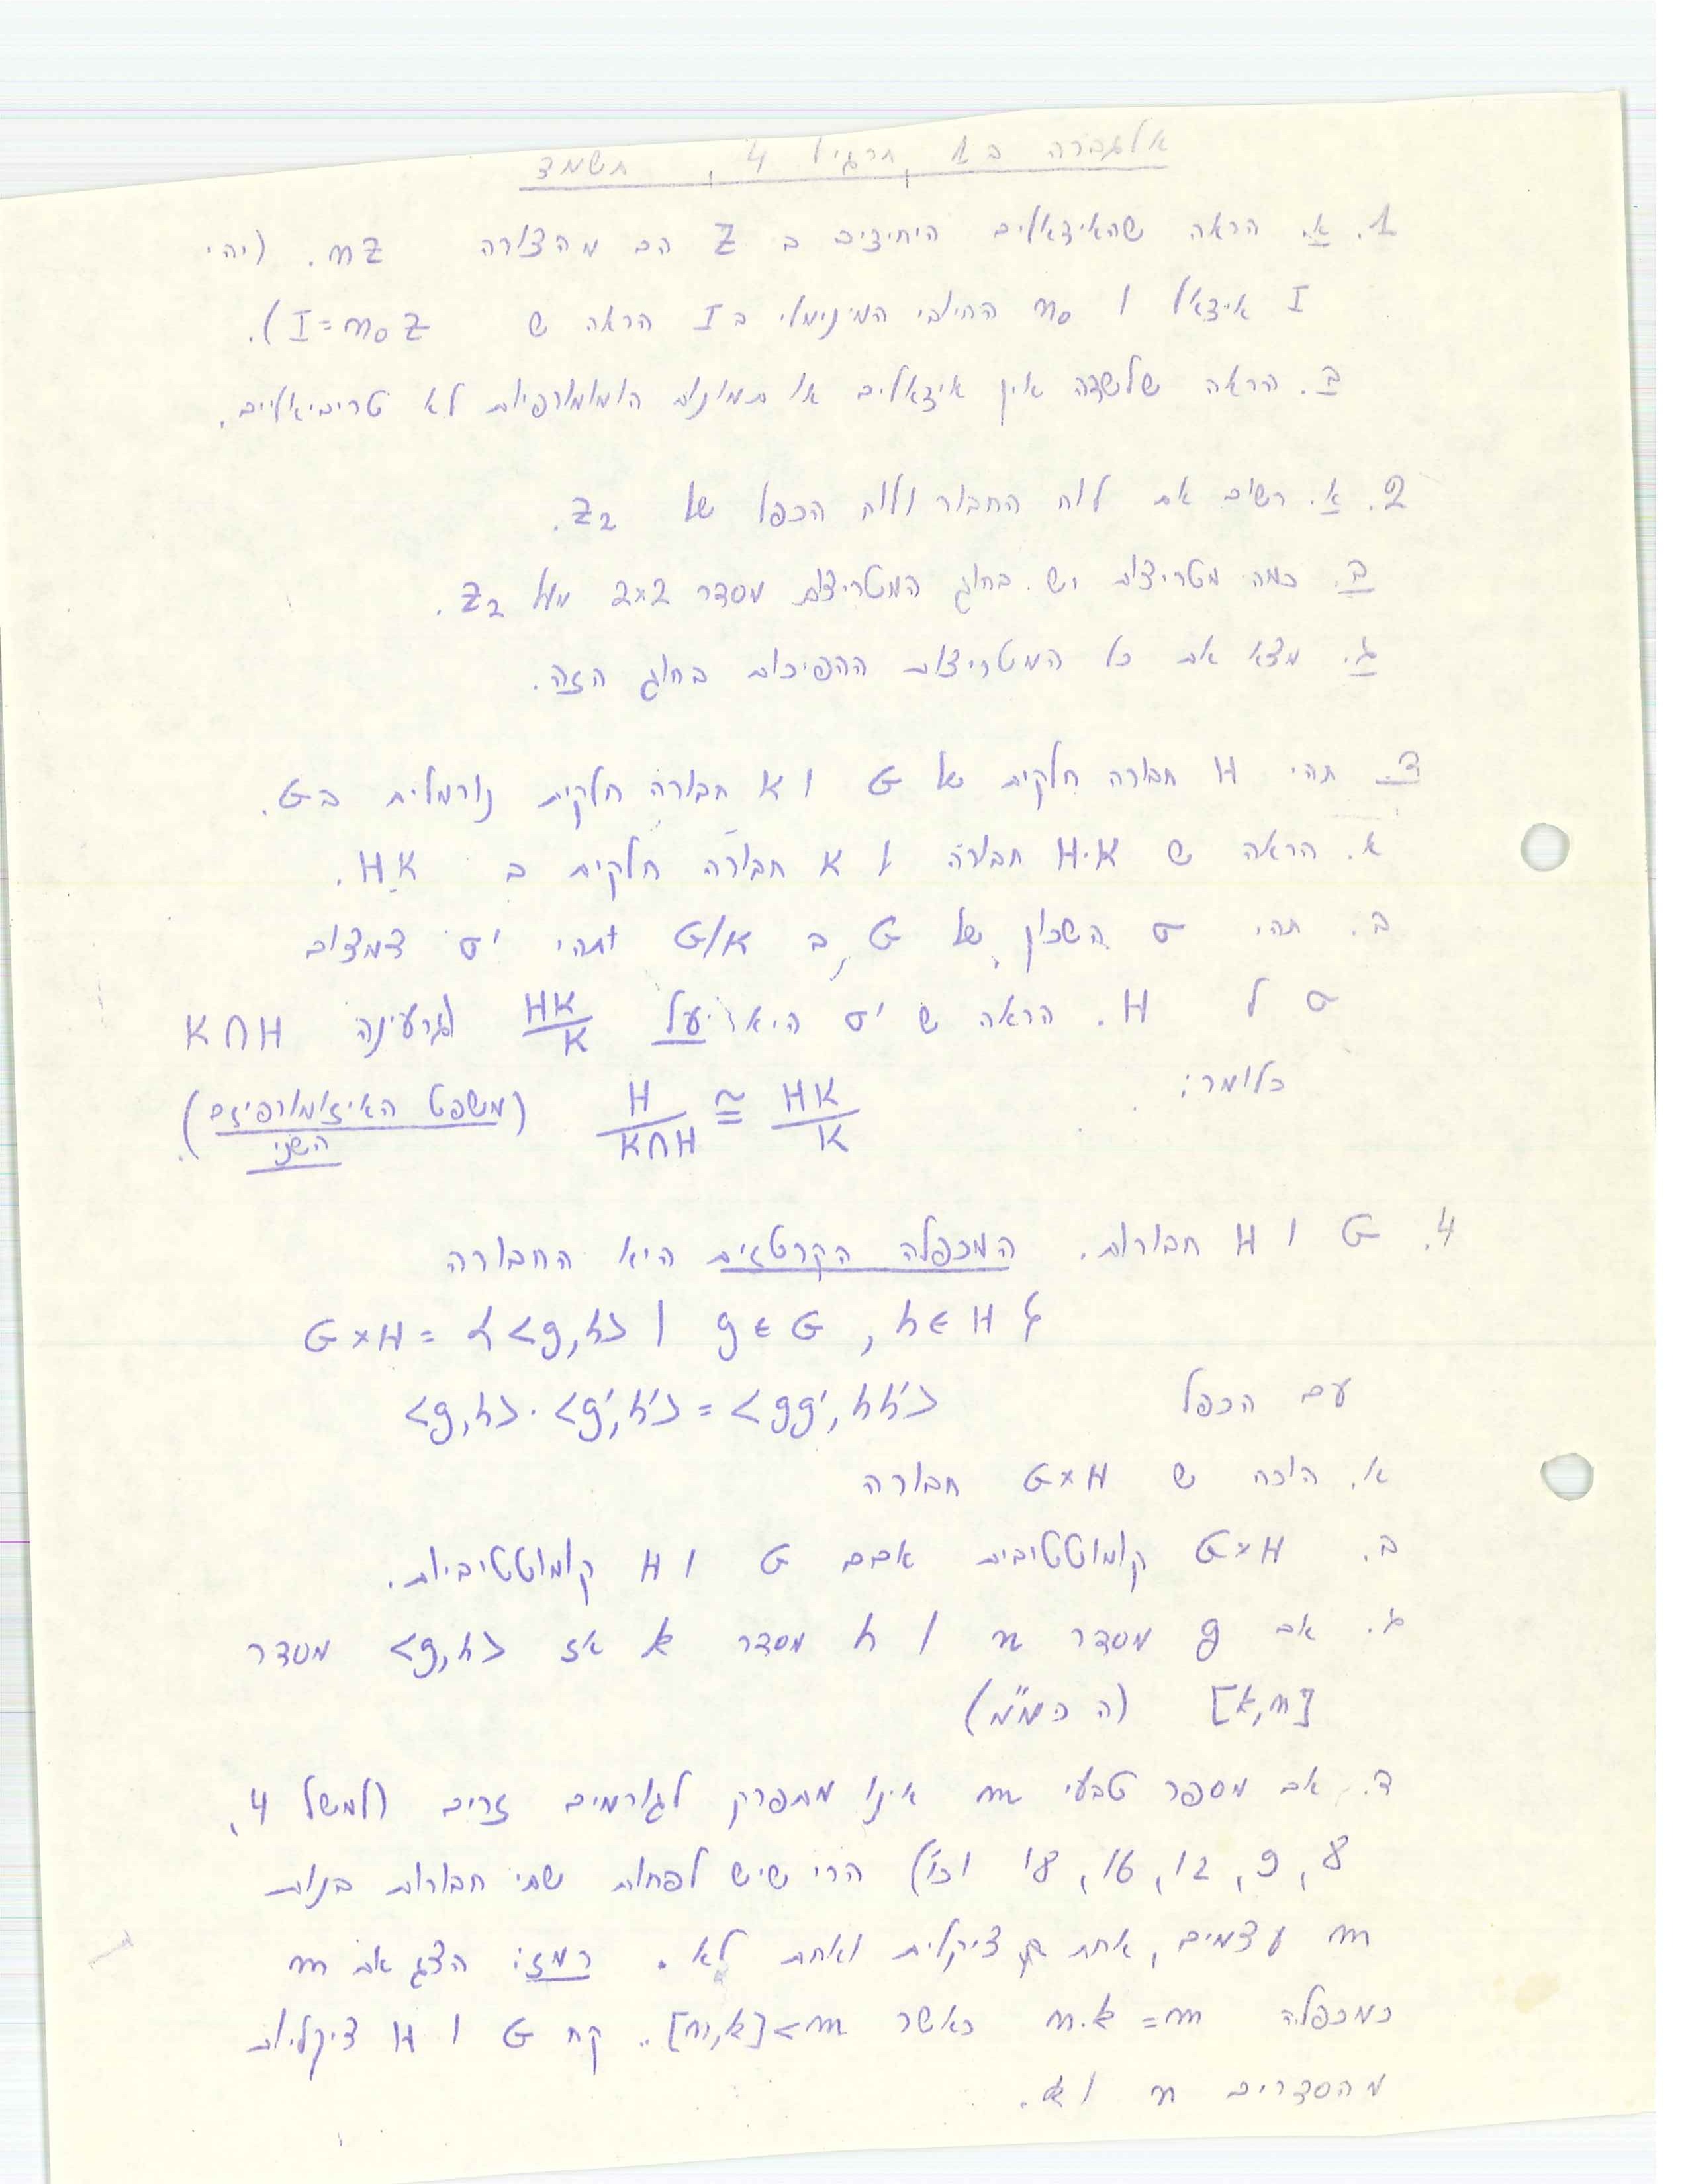 אלגברה ב1, תרגיל 4, תשמד
1. א. הראה שהאידאלים היחידים ב Z הם מהצורה mZ. (יהי
I אידאל ו m₀ החיובי המינימלי ב I הראה ש I=m₀Z).
ב. הראה שלשדה אין אידאלים או תמונות הומומורפיות לא טריביאליים.
2. א. רשום את לוח החבור ולוח הכפל של Z₂.
ב. כמה מטריצות יש בחוג המטריצות מסדר 2×2 מעל Z₂.
ג. מצא את כל המטריצות ההפיכות בחוג הזה.
3. תהי H חבורה חלקית של G ו K חבורה חלקית נורמלית ב G.
א. הראה ש H·K חבורה ו K חבורה חלקית ב HK.
ב. תהי σ השכון של G ב G/K ותהי σ' צמצום
σ ל H. הראה ש σ' היא על HK/K וגרעינה K∩H
כלומר: H/K∩H ≅ HK/K (משפט האיזומורפיזם
השני).
4. G ו H חבורות. המכפלה הקרטזית היא החבורה
G×H = {<g,h> | g∈G, h∈H}
עם הכפל <g,h>·<g',h'> = <gg',hh'>
א. הוכח ש G×H חבורה
ב. G×H קומוטטיבית אםם G ו H קומוטטיביות.
ג. אם g מסדר n ו h מסדר k אז <g,h> מסדר
[k,n] (ה כמ"מ)
ד. אם מספר טבעי m אינו מתפרק לגורמים זרים (למשל 4,
8, 9, 12, 16, 18 וכו') הרי שיש לפחות שתי חבורות בנות
m עצמים, אחת ציקלית ואחת לא. רמז: הצג את m
כמכפלה m=k·n כאשר [n,k]<m. קח G ו H ציקליות
מהסדרים n ו k.